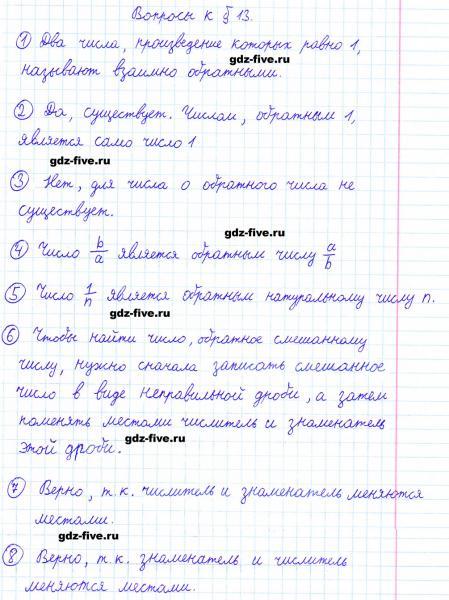 Вопросы к § 13.
① Два числа, произведение которых равно 1,
gdz-five.ru
называют взаимно обратными.
② Да, существует. Числом, обратным 1,
является само число 1
gdz-five.ru
③ Нет, для числа 0 обратного числа не
существует.
gdz-five.ru
④ Число b/a является обратным числу a/b
⑤ Число 1/n является обратным натуральному числу n.
gdz-five.ru
⑥ Чтобы найти число, обратное смешанному
числу, нужно сначала записать смешанное
число в виде неправильной дроби, а затем
поменять местами числитель и знаменатель
gdz-five.ru
этой дроби.
⑦ Верно, т.к. числитель и знаменатель меняются
местами.
gdz-five.ru
⑧ Верно, т.к. знаменатель и числитель
меняются местами.